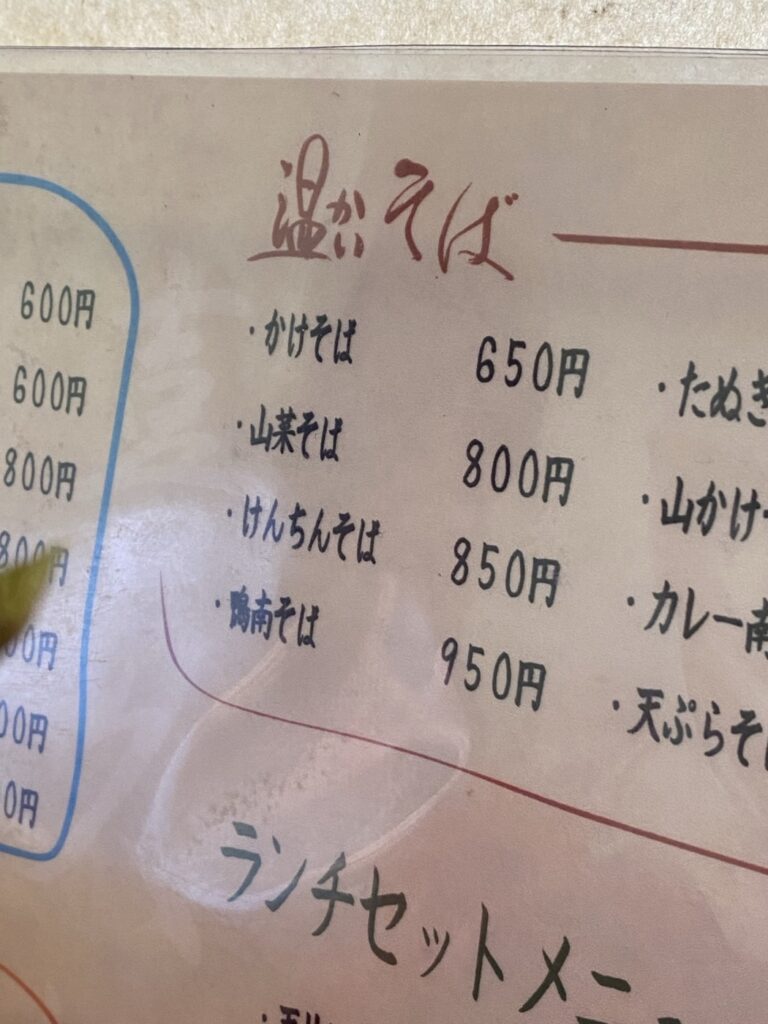 温かいそば
・かけそば 650円
・山菜そば 800円
・けんちんそば 850円
・鴨南そば 950円
・たぬき
・山かけ
・カレー南
・天ぷらそば
600円
600円
800円
800円
00円
00円
0円
ランチセットメニュー